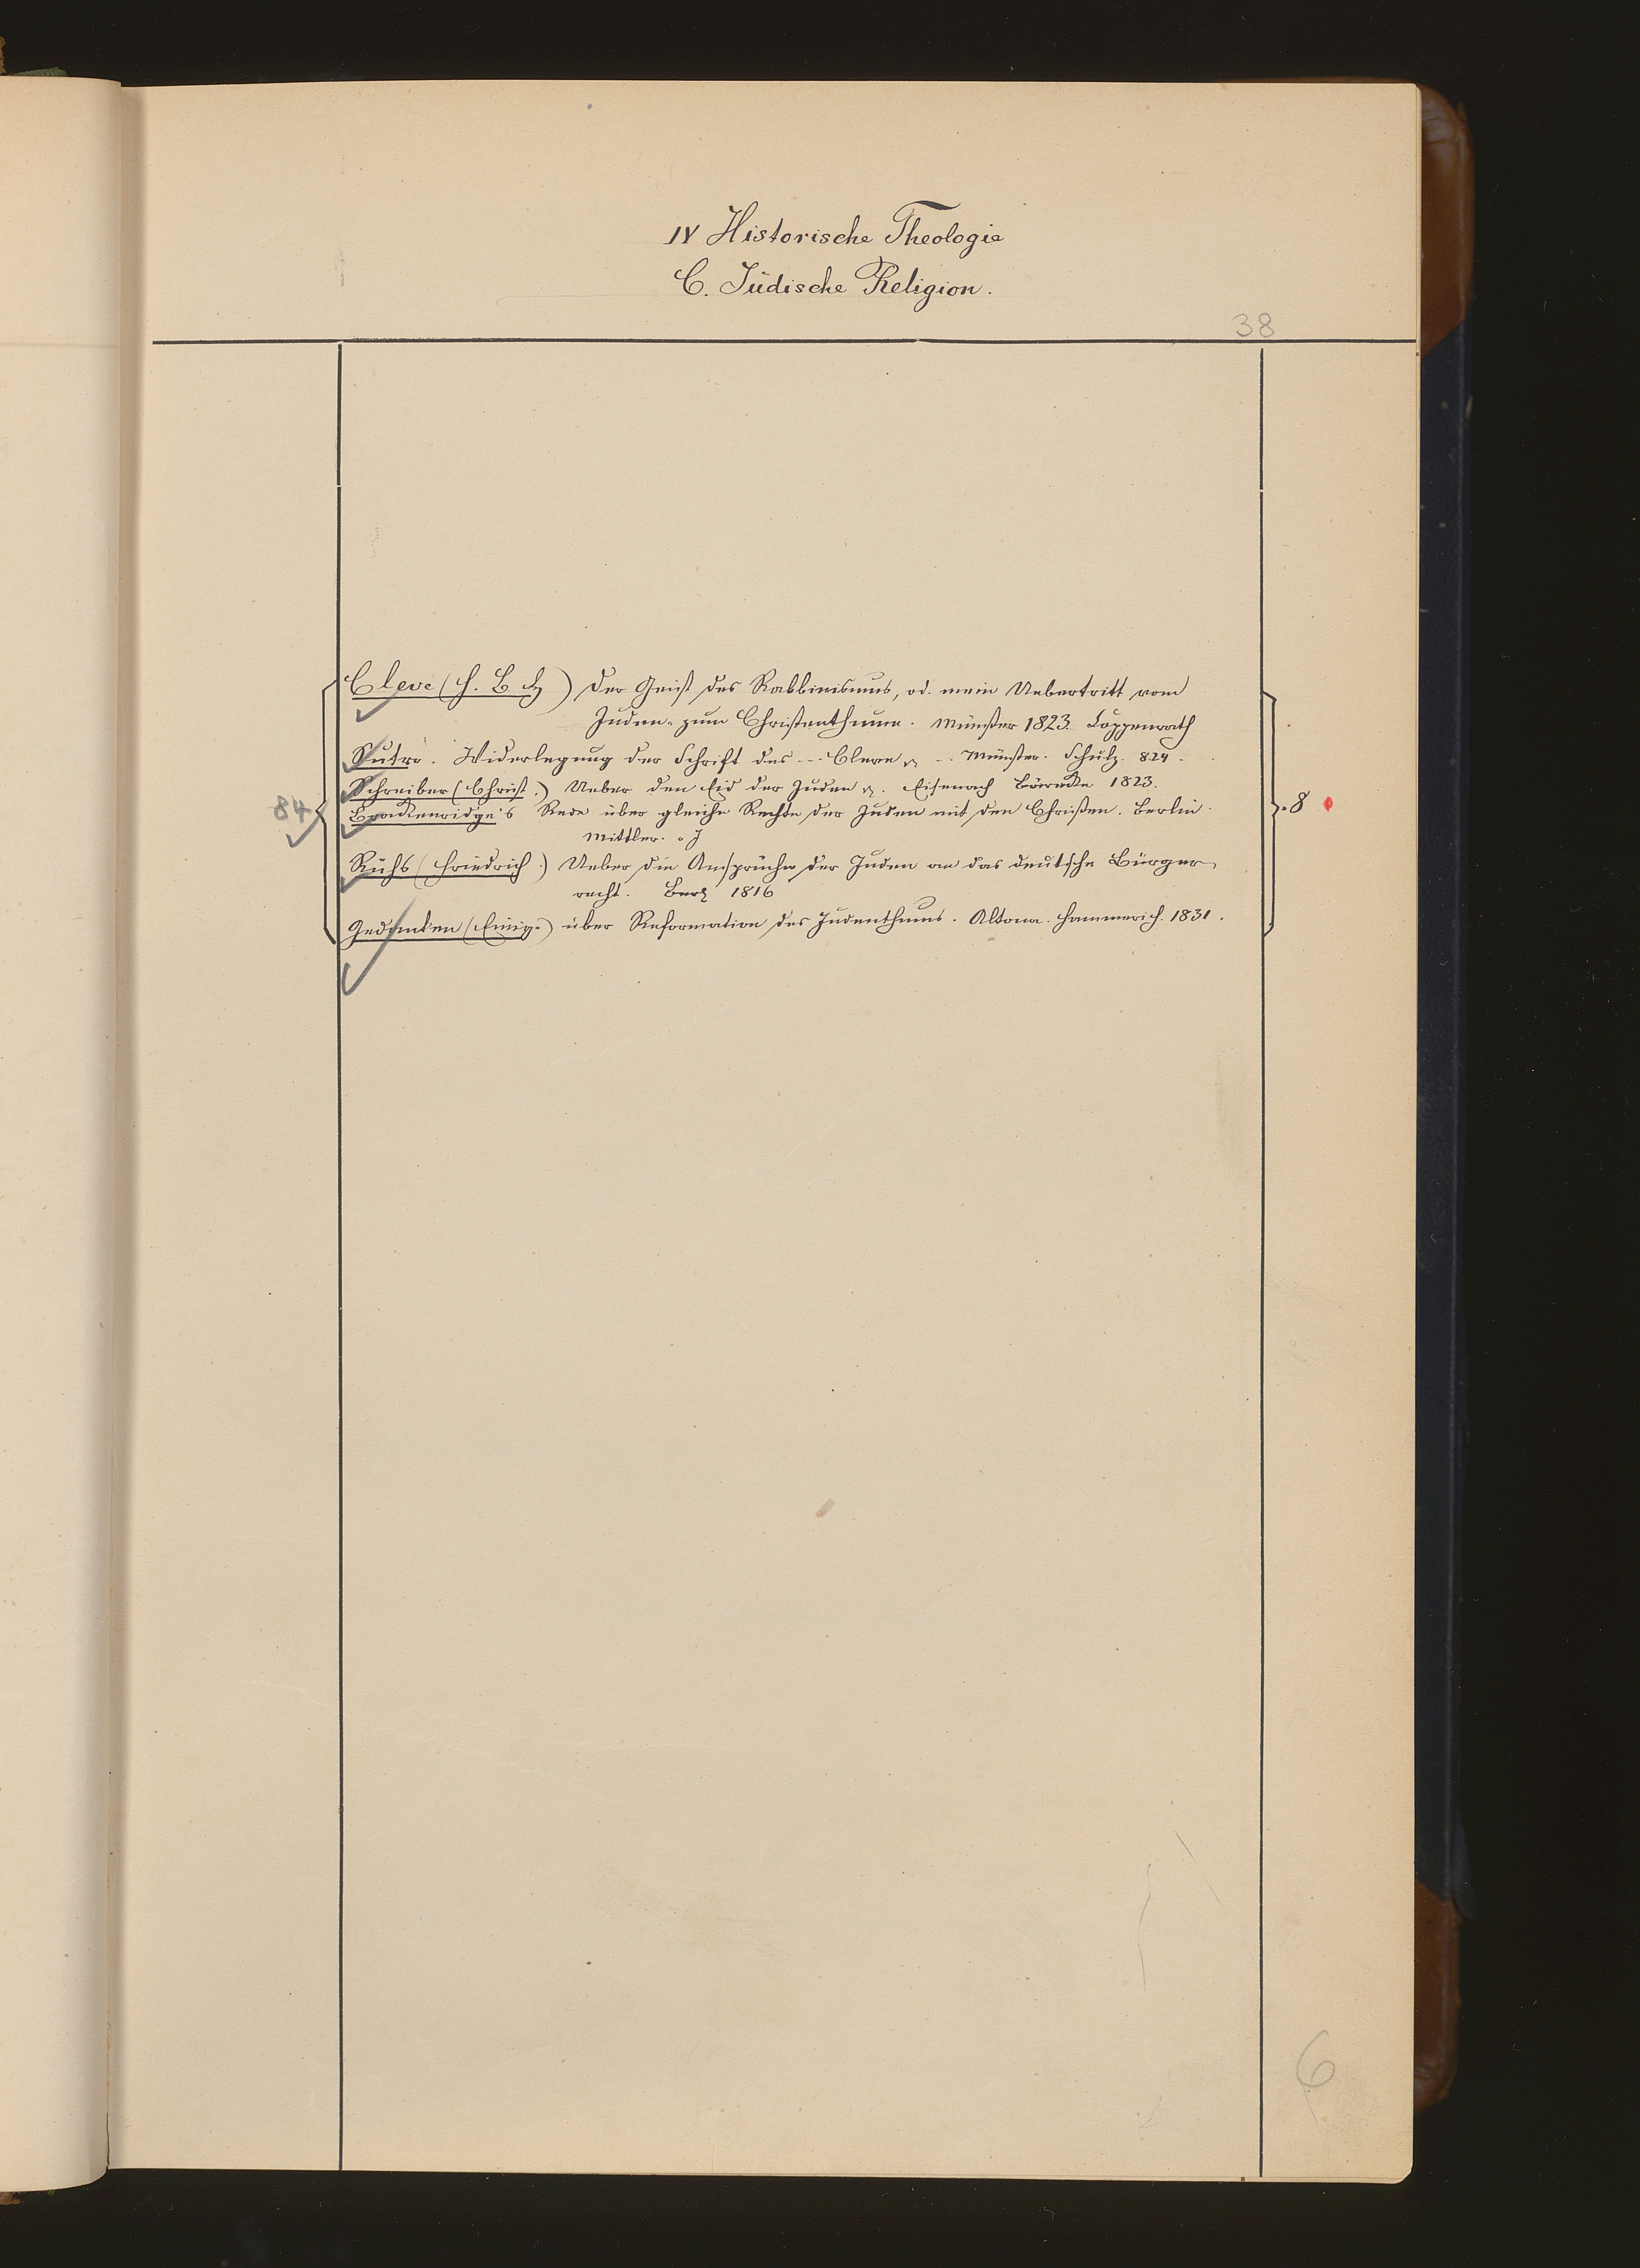 IV Historische Theologie
C. Jüdische Religion.
38
Cleve (H. B. H) Der Geist des Rabbinismus, od. mein Uebertritt vom
Juden- zum Christenthum. Münster 1823 Coppenrath
Sutro. Widerlegung der Schrift des --- Cleve -- Münster. Schulz. 824.
Schreiber (Christ.) Ueber den Eid der Juden. Eisenach Bärecke 1823.
84
Brackenridge's Rede über gleiche Rechte der Juden mit den Christen. Berlin.
8
Mittler. o J
Rühs (Friedrich.) Ueber die Ansprüche der Juden an das deutsche Bürger
recht. Berl 1816
Gedanken (Einige) über Reformation des Judenthums. Altona. Hammerich. 1831.
6